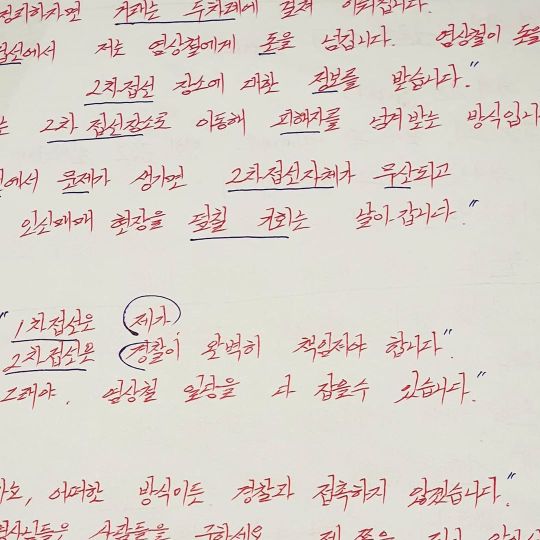 정리하자면 거래는 두차례에 걸쳐 이뤄집니다.
접선에서 저는 염상철에게 돈을 넘깁니다. 염상철이 돈을
2차접선 장소에 대한 정보를 받습니다."
는 2차 접선장소로 이동해 피해자를 넘겨받는 방식입니
에서 문제가 생기면 2차접선자체가 무산되고
인신매매 현장을 덮칠 기회는 날아갑니다."
"1차접선은 제가,
2차접선은 경찰이 완벽히 책임져야 합니다".
그래야, 염상철 일당을 다 잡을수 있습니다."
이후, 어떠한 방식이든 경찰과 접촉하지 않겠습니다."
형사님들은 사람들을 구하세요